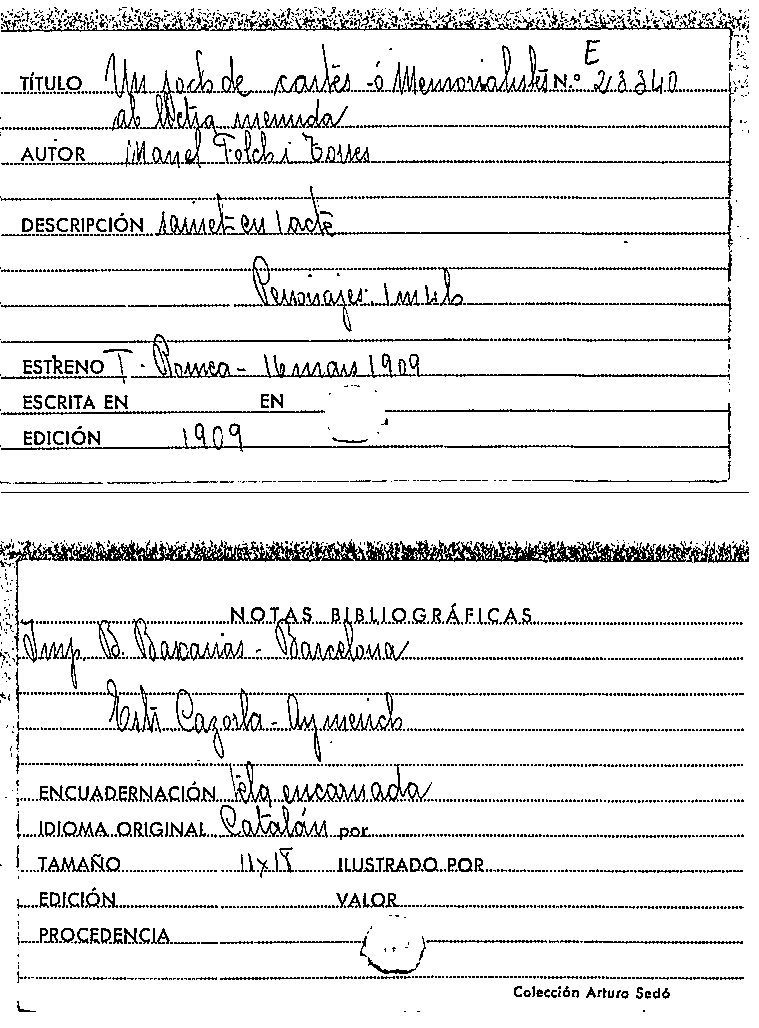 E
TÍTULO Un joch de cartes ó Memorialista N.º 213340
ab lletra menuda
AUTOR Manel Folch i Torres
DESCRIPCIÓN sainet en 1 acte
Personajes. 1 m 4 h
ESTRENO T. Romea - 16 mars 1909
ESCRITA EN EN
EDICIÓN 1909
NOTAS BIBLIOGRÁFICAS
Imp. B. Baxarias - Barcelona
Cazorla - Aymerich
ENCUADERNACIÓN tela encarnada
IDIOMA ORIGINAL Catalán por
TAMAÑO 11x18 ILUSTRADO POR
EDICIÓN VALOR
PROCEDENCIA
Colección Arturo Sedó